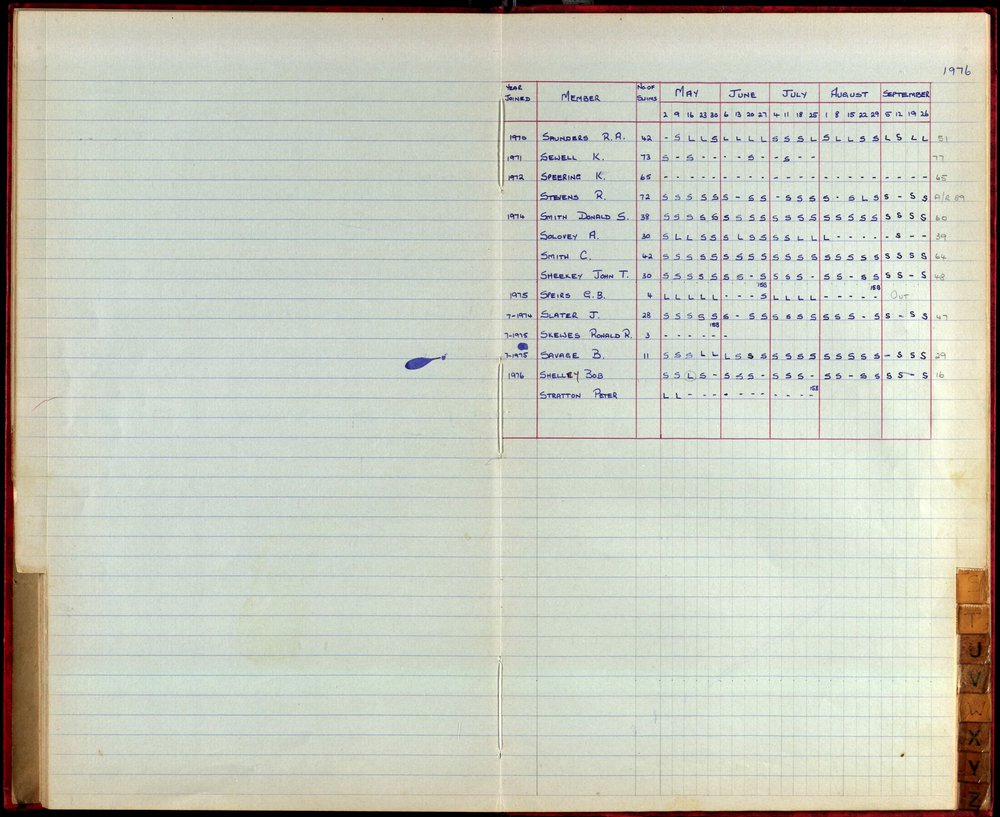 1976
YEAR JOINED MEMBER No. OF SWIMS MAY JUNE JULY AUGUST SEPTEMBER
2 9 16 23 30 6 13 20 27 4 11 18 25 1 8 15 22 29 5 12 19 26
1970 SAUNDERS R.A. 42 - S L L S L L L L S S S L S L L S S L S L L 51
1971 SEWELL K. 73 S - S - - - - S - - S - - 77
1972 SPEERING K. 65 - - - - - - - - - - - - - - - - - - - - - - 65
STEVENS R. 72 S S S S S S - S S - S S S S - S L S S - S S A/R 89
1974 SMITH DONALD S. 38 S S S S S S S S S S S S S S S S S S S S S S 60
SOLOVEY A. 30 S L L S S S L S S S L L L L - - - - - S - - 39
SMITH C. 42 S S S S S S S S S S S S S S S S S S S S S S 64
SHEEKEY JOHN T. 30 S S S S S S S - S S S S - S S - S S S S - S 48
1975 SPEIRS G.B. 4 L L L L L - - - S 158 L L L L - - - - - 158 OUT
7-1974 SLATER J. 28 S S S S S S - S S S S S S S S S - S S - S S 47
7-1975 SKEWES RONALD R. 3 - - - - - 158 -
7-1975 SAVAGE B. 11 S S S L L L S S S S S S S S S S S S - S S S 29
1976 SHELLEY BOB S S L S - S S S - S S S - S S - S S S S - S 16
STRATTON PETER L L - - - - - - - - - - - 158
S
T
U
V
W
X
Y
Z